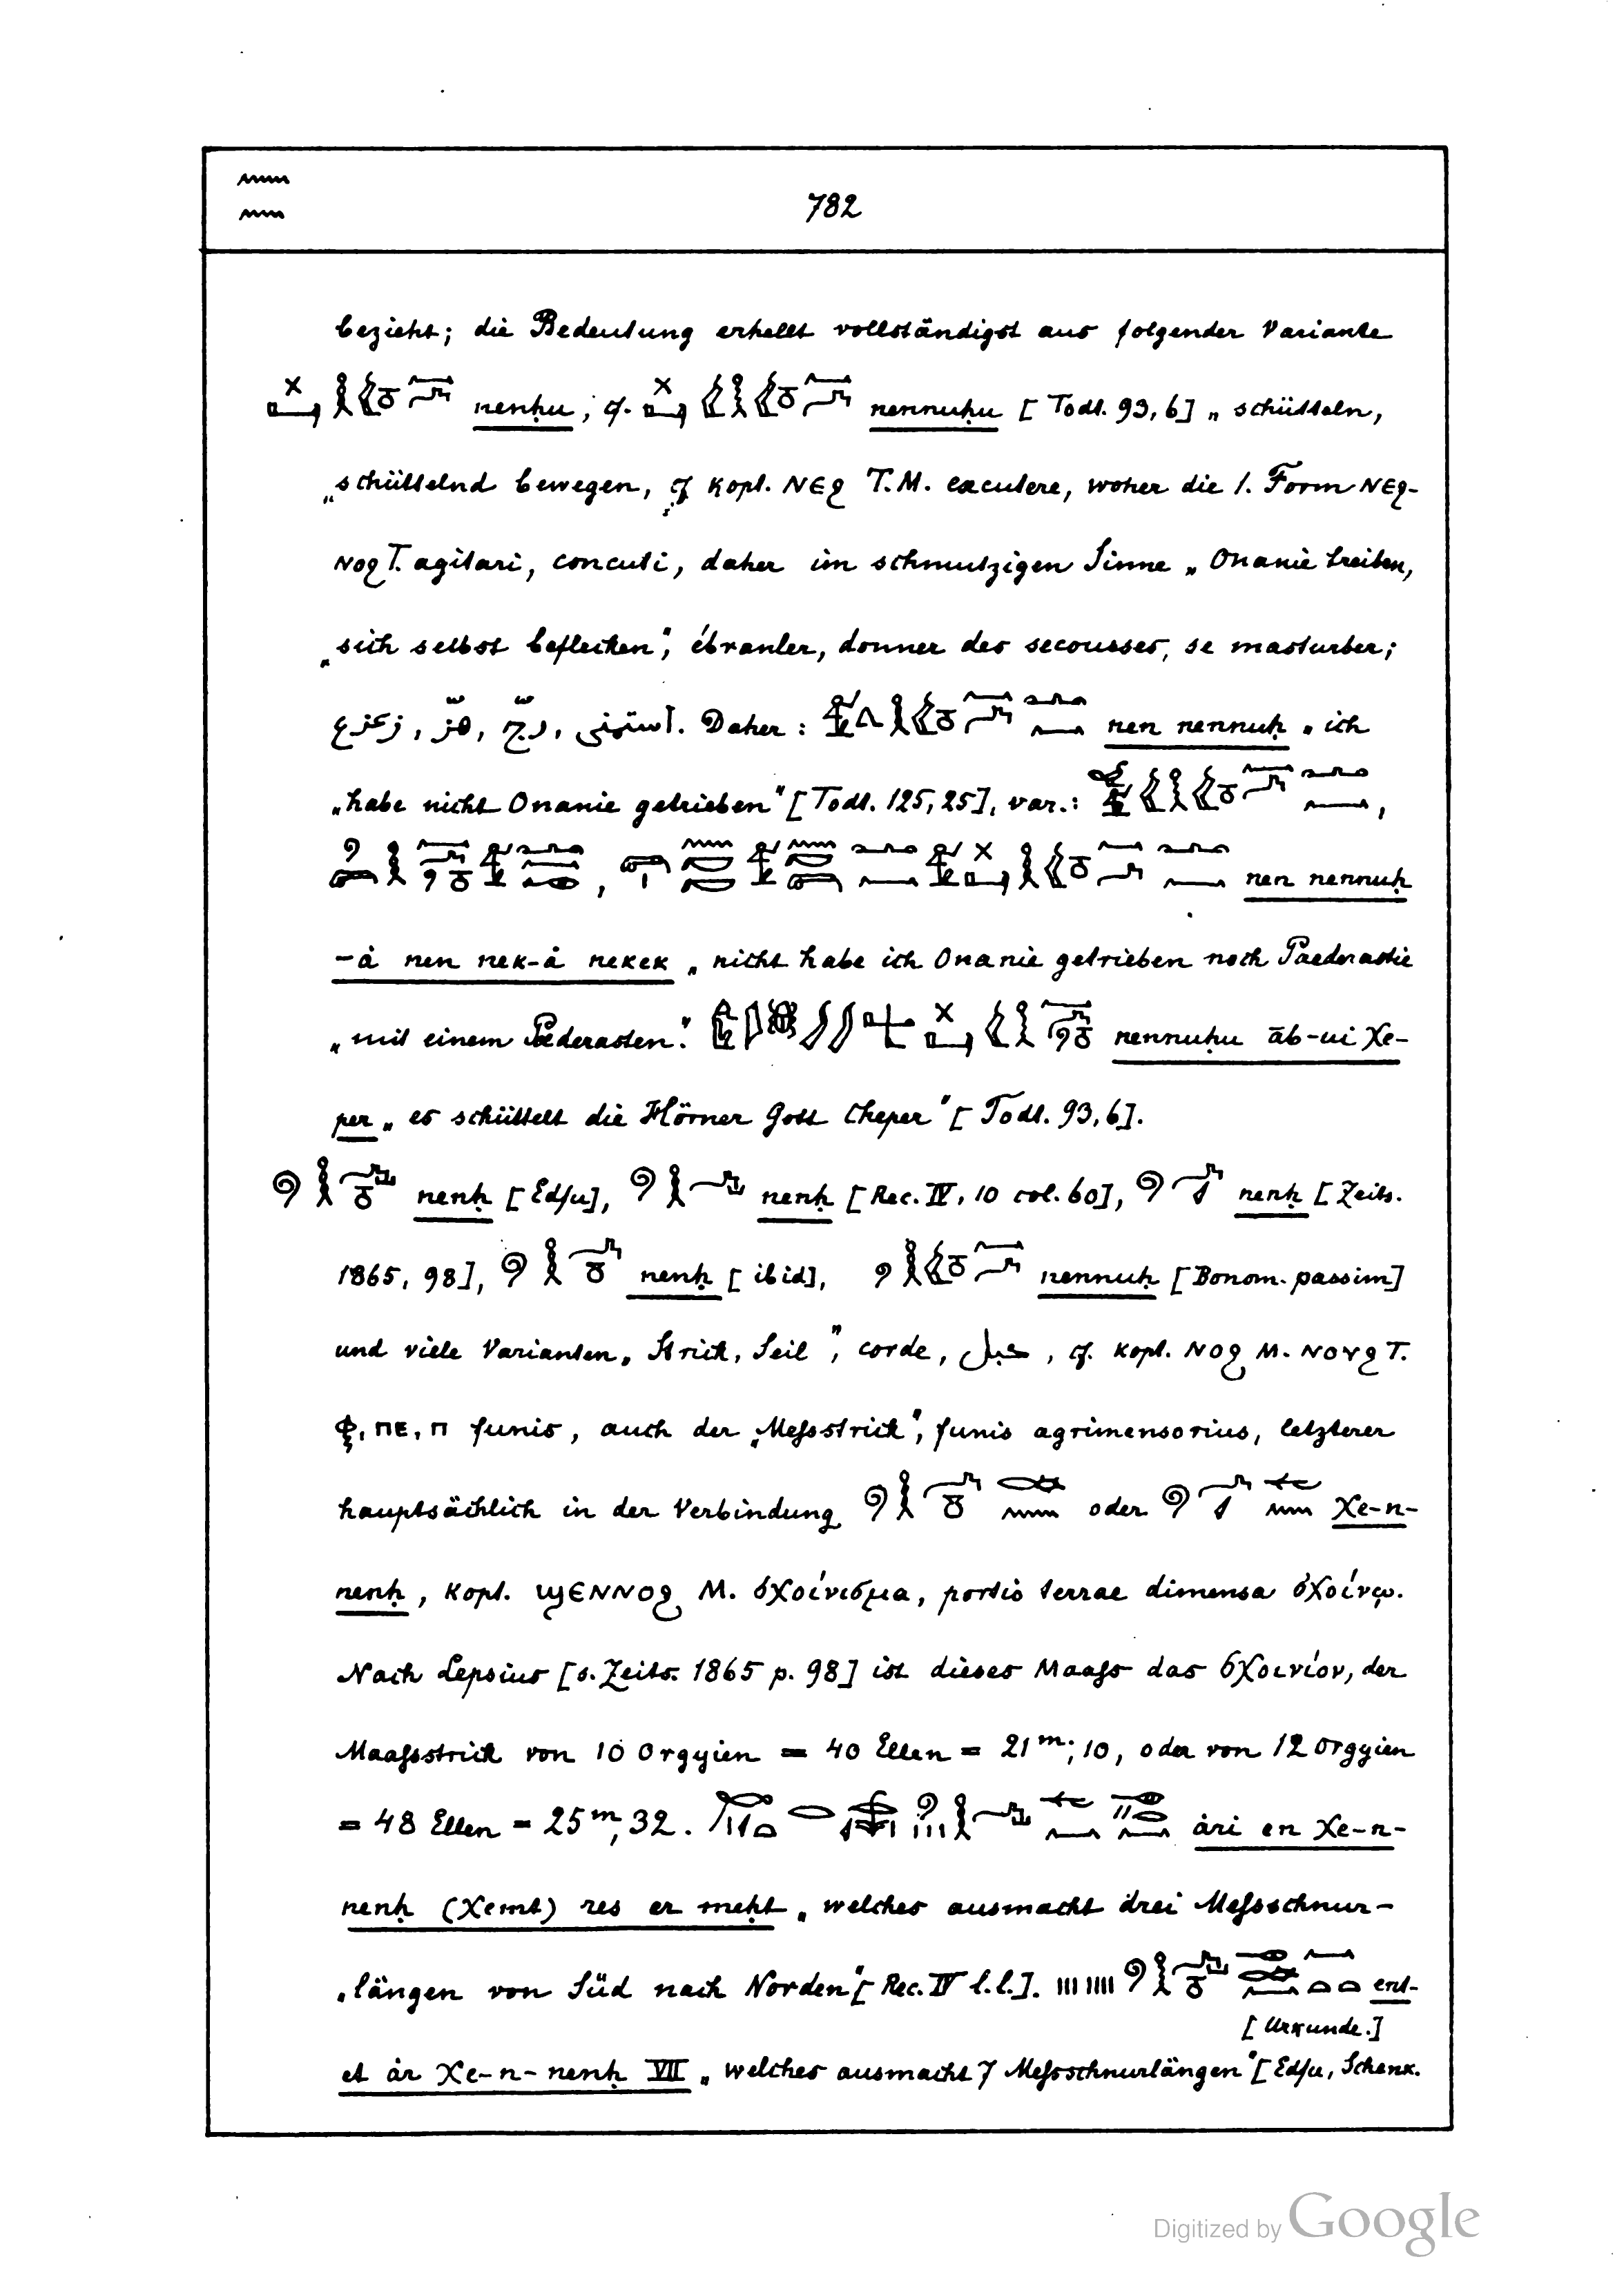 782
bezieht; die Bedeutung erhellt vollständigst aus folgender Variante
nenḥu; cf. nennuḥu [Todt. 93,6] „schütteln,
„schüttelnd bewegen, cf kopt. ⲚⲈϨ T.M. excutere, woher die 1. Form ⲚⲈϨ-
ⲚⲞϨ T. agitari, concuti, daher im schmutzigen Sinne „Onanie treiben,
„sich selbst beflecken“, ébranler, donner des secousses, se masturber;
زعزع, هزّ, رجّ, آستمنى. Daher: nen nennuḥ „ich
„habe nicht Onanie getrieben“ [Todt. 125,25], var.:
, nen nennuḥ
-ȧ nen nek-ȧ nekek „nicht habe ich Onanie getrieben noch Paederastie
„mit einem Pederasten.“ nennuḥu āb-ui Χe-
per „es schüttelt die Hörner Gott Cheper“ [Todt. 93,6].
nenḥ [Edfu], nenḥ [Rec. IV, 10 col. 60], nenḥ [Zeits.
1865, 98], nenḥ [ibid], nennuḥ [Bonom. passim]
und viele Varianten „Strick, Seil“, corde, حبل, cf. kopt. ⲚⲞϨ M. ⲚⲞⲨϨ T.
ⲠⲈ, Ⲡ funis, auch der „Meſsstrick“, funis agrimensorius, letzterer
hauptsächlich in der Verbindung oder Χe-n-
nenḥ, kopt. ϢⲈⲚⲚⲞϨ M. σχοίνισμα, portio terrae dimensa σχοίνῳ.
Nach Lepsius [s. Zeits. 1865 p. 98] ist dieses Maaſs das σχοινίον, der
Maaſsstrick von 10 Orgyien = 40 Ellen = 21 m, 10, oder von 12 Orgyien
= 48 Ellen = 25 m, 32. ȧri en Χe-n-
nenḥ (Χemt) res er meḥt „welches ausmacht drei Meſsschnur-
„längen von Süd nach Norden“ [Rec. IV l.l.]. ent-
[Urkunde.]
et ȧr Χe-n-nenḥ VII „welches ausmacht 7 Meſsschnurlängen“ [Edfu, Schenk.
Digitized by Google